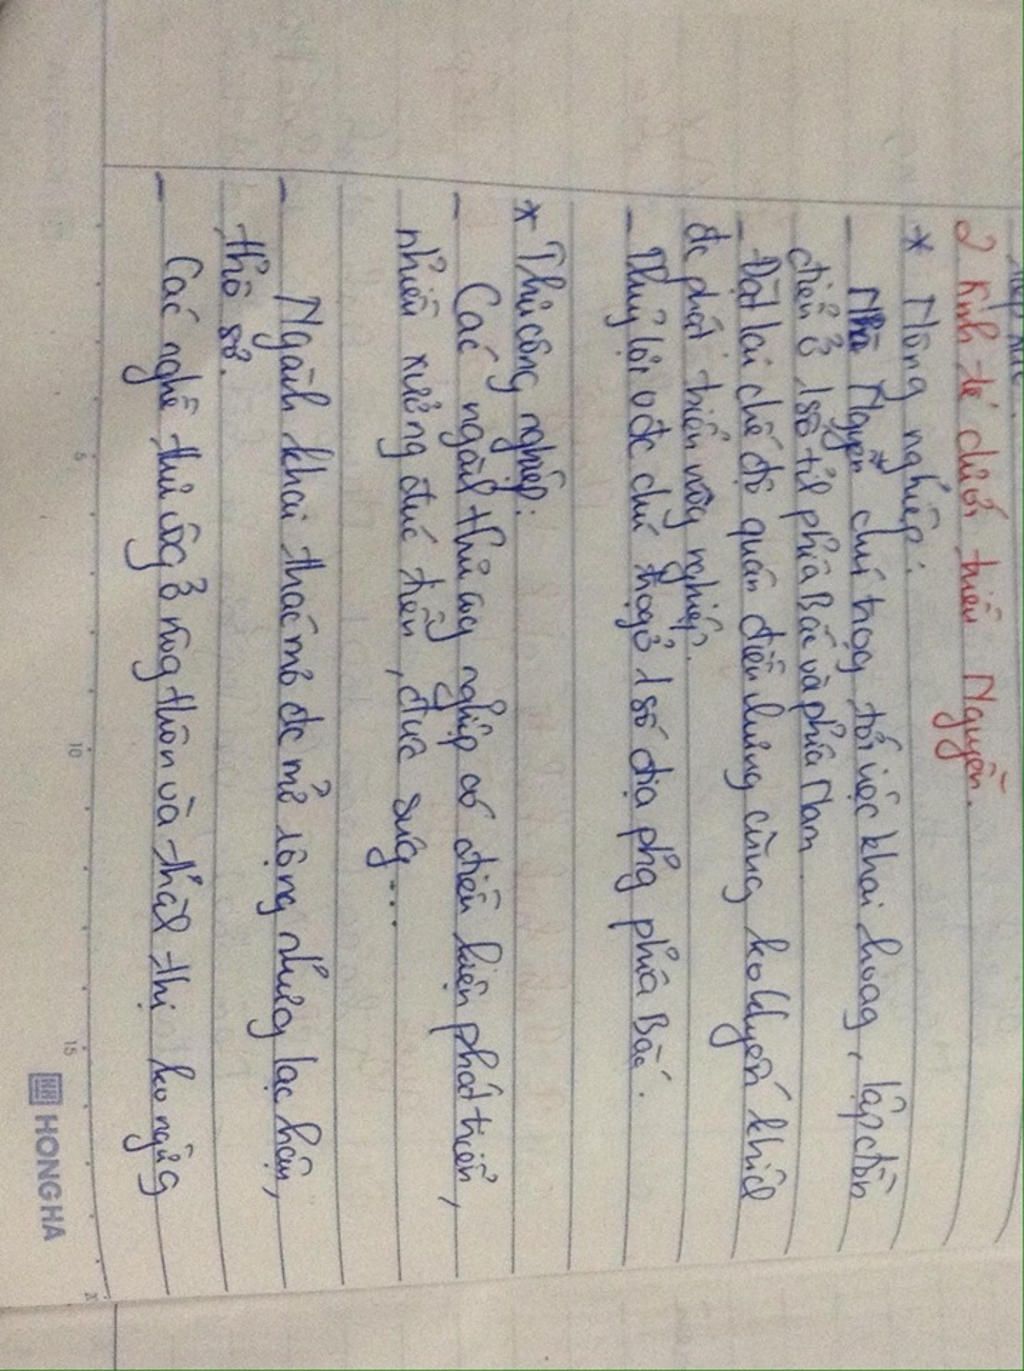 2 Kinh tế dưới triều Nguyễn.
* Nông nghiệp:
- Nhà Nguyễn chú trọg tới việc khai hoag, lập đồn
điền ở 1 số tỉh phía Bắc và phía Nam.
- Đặt lại chế độ quân điền nhưng cũng ko khuyến khích
đc phát triển nôg nghiệp.
- Thuỷ lợi 0 đc chú trọg ở 1 số địa phg phía Bắc.
* Thủ công nghiệp:
- Các ngàh thủ côg nghiệp có điều kiện phát triển,
nhiều xưởng đúc tiền, đúc súg...
- Ngành khai thác mỏ đc mở rộng nhưng lạc hậu,
thô sơ.
- Các nghề thủ côg ở nôg thôn và thàh thị ko ngừg
5
10
15
HONG HA